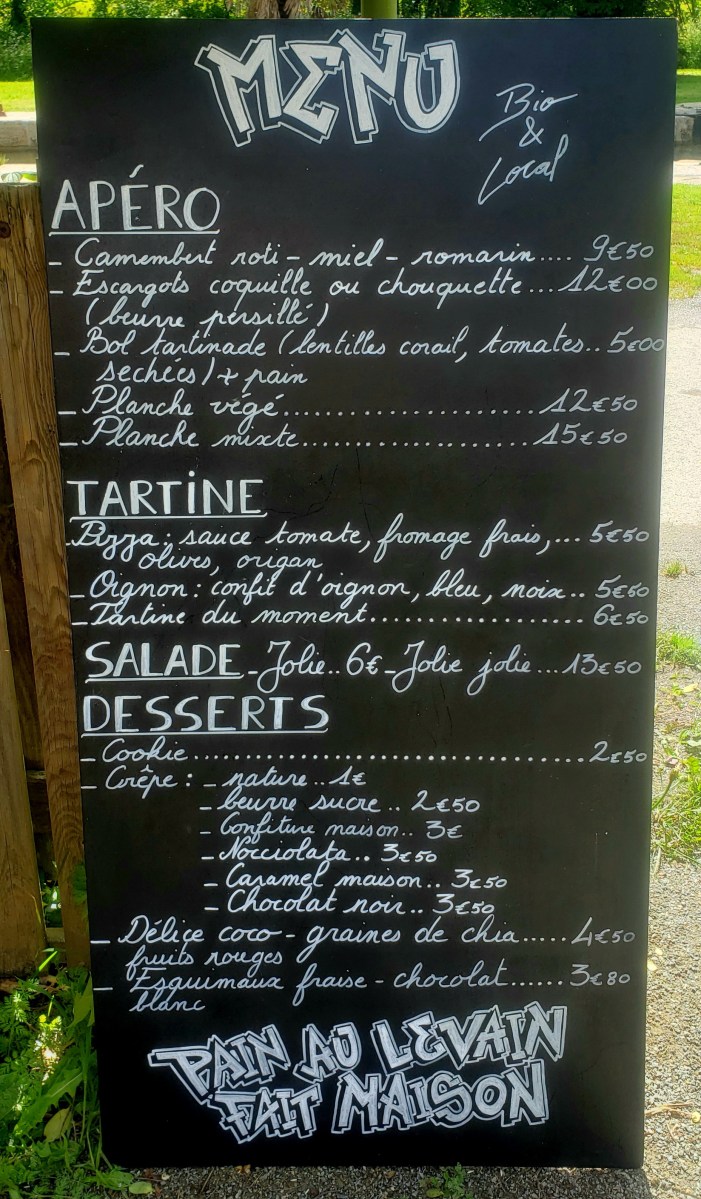 MENU
Bio
&
Local
APÉRO
- Camembert roti - miel - romarin.... 9€50
- Escargots coquille ou chouquette...12€00
(beurre persillé)
- Bol tartinade (lentilles corail, tomates.. 5€00
sechées) + pain
- Planche végé.......................12€50
- Planche mixte.....................15€50
TARTINE
- Pizza : sauce tomate, fromage frais,... 5€50
olives, origan
- Oignon : confit d'oignon, bleu, noix.. 5€50
- Tartine du moment................... 6€50
SALADE - Jolie.. 6€ - Jolie jolie ...13€50
DESSERTS
- Cookie.......................................2€50
- Crêpe : - nature..1€
- beurre sucre .. 2€50
- Confiture maison.. 3€
- Nocciolata.. 3€50
- Caramel maison.. 3€50
- Chocolat noir.. 3€50
- Délice coco - graines de chia..... 4€50
fruits rouges
- Esquimaux fraise - chocolat...... 3€80
blanc
PAIN AU LEVAIN
FAIT MAISON